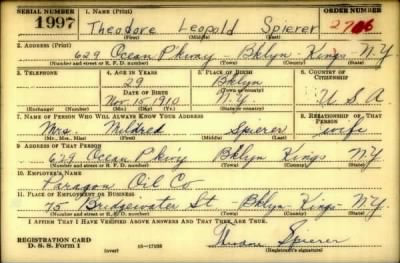 SERIAL NUMBER 1. NAME (Print) ORDER NUMBER
1997 Theodore Leopold Spierer
(First) (Middle) (Last)
2. ADDRESS (Print)
629 Ocean Pkway - Bklyn - Kings - N.Y.
(Number and street or R. F. D. number) (Town) (County) (State)
3. TELEPHONE 4. AGE IN YEARS 5. PLACE OF BIRTH 6. COUNTRY OF CITIZENSHIP
29 Bklyn
DATE OF BIRTH (Town or county)
Nov. 10 1910 N.Y. U.S.A.
(Exchange) (Number) (Mo.) (Day) (Yr.) (State or country)
7. NAME OF PERSON WHO WILL ALWAYS KNOW YOUR ADDRESS 8. RELATIONSHIP OF THAT PERSON
Mrs. Mildred Spierer wife
(Mr., Mrs., Miss) (First) (Middle) (Last)
9. ADDRESS OF THAT PERSON
629 Ocean Pkwy Bklyn Kings N.Y.
(Number and street or R. F. D. number) (Town) (County) (State)
10. EMPLOYER'S NAME
Paragon Oil Co
11. PLACE OF EMPLOYMENT OR BUSINESS
75 Bridgewater St - Bklyn - Kings - N.Y.
(Number and street or R. F. D. number) (Town) (County) (State)
I AFFIRM THAT I HAVE VERIFIED ABOVE ANSWERS AND THAT THEY ARE TRUE.
REGISTRATION CARD Spierer
D. S. S. Form 1 (over) (Registrant's signature)